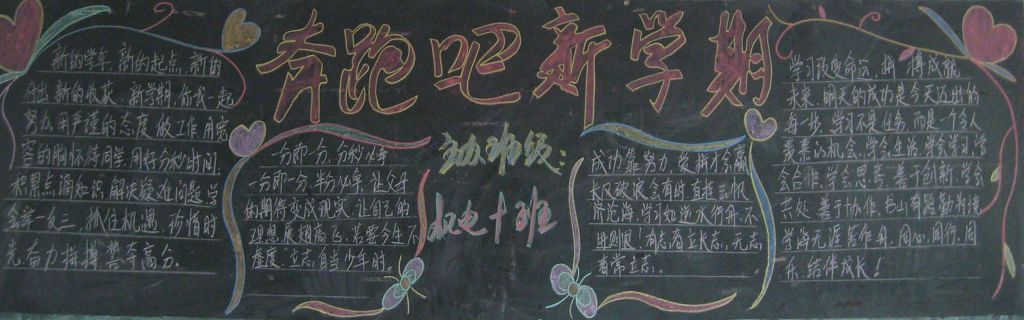 奔跑吧新学期
新的学年 新的起点, 新的
付出 新的收获. 新学期, 你我一起
努力, 用严谨的态度做工作, 用宽
容的胸怀待同学, 用好分秒时间
积累点滴知识, 解决疑难问题, 学
会举一反三, 抓住机遇, 珍惜时
光 奋力拼搏 誓夺高分.
一分耶一分, 分秒必争
一分耶一分, 半分必争, 让父母
的期待变成现实, 让自己的
理想展翅高飞, 若要今生不
虚度, 立志自当少年时.
主办班级:
机电十班
成功靠努力 爱拼才会赢
长风破浪会有时 直挂云帆
济沧海. 学习如逆水行舟, 不
进则退! 有志者立长志, 无志
者常立志.
学习改变命运 拼搏成就
未来. 明天的成功是今天迈出的
每一步. 学习不是任务, 而是一个令人
羡慕的机会. 学会生活 学会学习 学
会合作, 学会思考, 善于创新, 学会
共处, 善于协作, 书山有路勤为径
学海无涯苦作舟. 同心, 同行, 同
乐, 结伴成长!